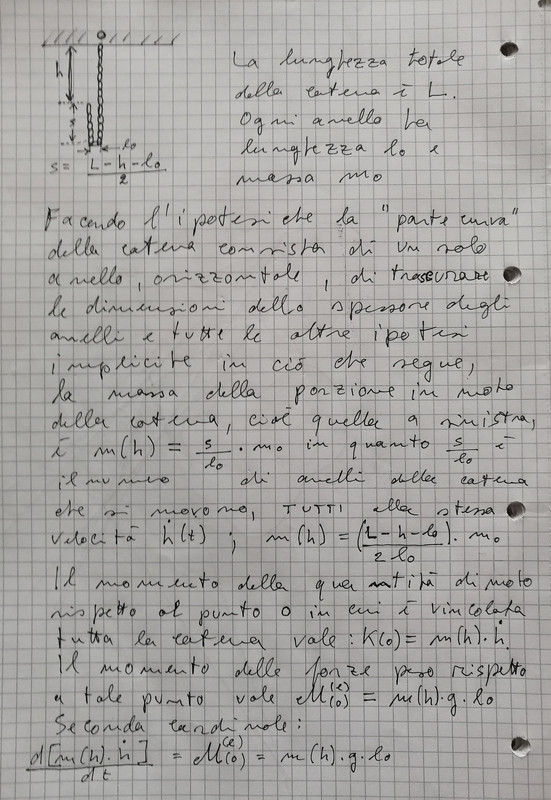 h
s
l₀
s = (L - h - l₀)/2
La lunghezza totale
della catena è L.
Ogni anello ha
lunghezza l₀ e
massa m₀
Facendo l'ipotesi che la "parte curva"
della catena consista di un solo
anello, orizzontale, di trascurare
le dimensioni dello spessore degli
anelli e tutte le altre ipotesi
implicite in ciò che segue,
la massa della porzione in moto
della catena, cioè quella a sinistra,
è m(h) = s/l₀ · m₀ in quanto s/l₀ è
il numero di anelli della catena
che si muovono, TUTTI alla stessa
velocità ḣ(t) ; m(h) = (L - h - l₀)/(2 l₀) · m₀
Il momento della quantità di moto
rispetto al punto O in cui è vincolata
tutta la catena vale : K(O) = m(h) · ḣ
Il momento delle forze peso rispetto
a tale punto vale M(O)^(e) = m(h) · g · l₀
Seconda cardinale :
d[m(h) · ḣ]/dt = M(O)^(e) = m(h) · g · l₀